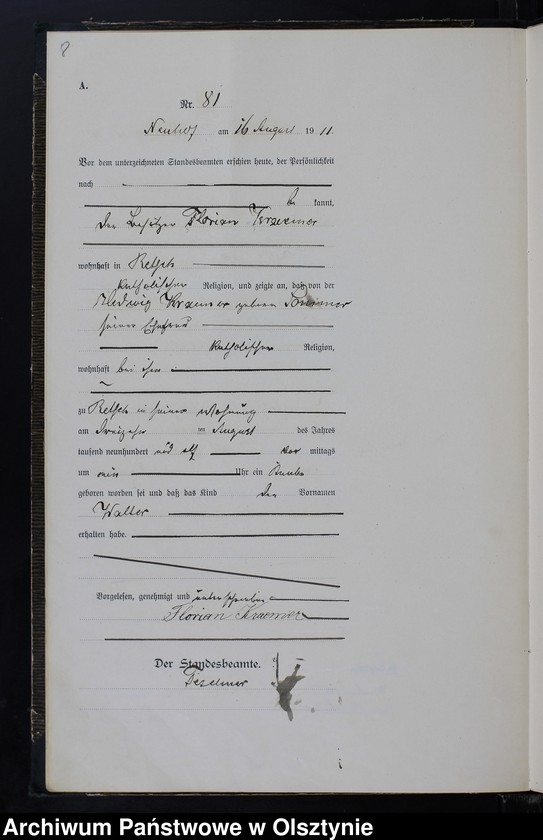 8
A.
Nr. 81
Neuhof am 16 August 1911.
Vor dem unterzeichneten Standesbeamten erschien heute, der Persönlichkeit
nach
be kannt,
der Besitzer Florian Kraemer
wohnhaft in Retsch
katholischer Religion, und zeigte an, daß von der
Hedwig Kraemer geborene
seiner Ehefrau
katholischer Religion,
wohnhaft bei ihm
zu Retsch in seiner Wohnung
am dreizehn ten August des Jahres
tausend neunhundert und elf vor mittags
um Uhr ein Knabe
geboren worden sei und daß das Kind den Vornamen
Walter
erhalten habe.
Vorgelesen, genehmigt und unterschrieben
Florian Kraemer
Der Standesbeamte.
Archiwum Państwowe w Olsztynie